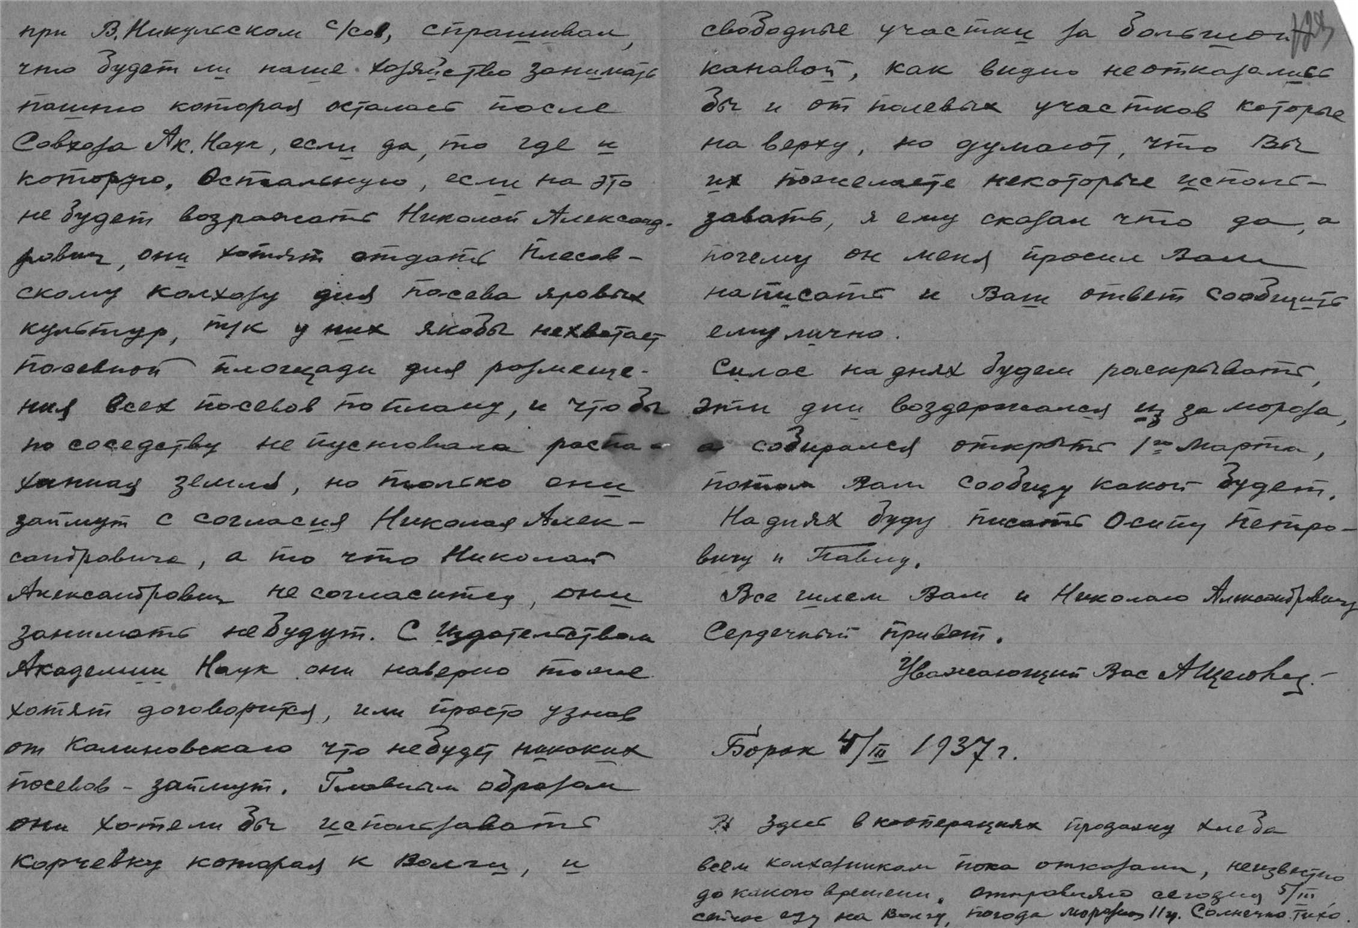 при В.Никульском с/сов, спрашивал,
что будет ли наше хозяйство занимать
пашню которая осталась после
Совхоза Ак. Наук, если да, то где и
которую. Остальную, если на это
не будет возражать Николай Александ-
рович, они хотят отдать Плесов-
скому колхозу для посева яровых
культур, т/к у них якобы нехватает
посевной площади для размеще-
ния всех посевов по плану, и чтобы
по соседству не пустовала распа-
ханная земля, но только они
займут с согласия Николая Алек-
сандровича, а то что Николай
Александрович несогласится, они
занимать небудут. С Издательством
Академии Наук они наверно тоже
хотят договорится, или просто узнав
от Калиновского что небудет никаких
посевов - займут. Главным образом
они хотели бы использовать
корчевку которая к Волги, и
свободные участки за большой
канавой, как видно неотказались
бы и от полевых участков которые
на верху, но думают, что Вы
их пожелаете некоторые исполь-
зовать, я ему сказал что да, а
почему он меня просил Вам
написать и Ваш ответ сообщить
ему лично.
Силос на днях будем раскрывать,
эти дни воздержался из за мороза,
а собирался открыть 1го марта,
потом Вам сообщу какой будет.
На днях буду писать Осипу Петро-
вичу и Павлу.
Все шлем Вам и Николаю Александровичу
Сердечный привет.
Уважающий Вас
Борок 4/III 1937 г.
Здесь в кооперациях продажу хлеба
всем колхозникам пока отказали, неизвестно
до какого времени. отправляю сегодня 5/III
сейчас еду на Волгу, погода мороз 11 гр. Солнечно. Тихо.